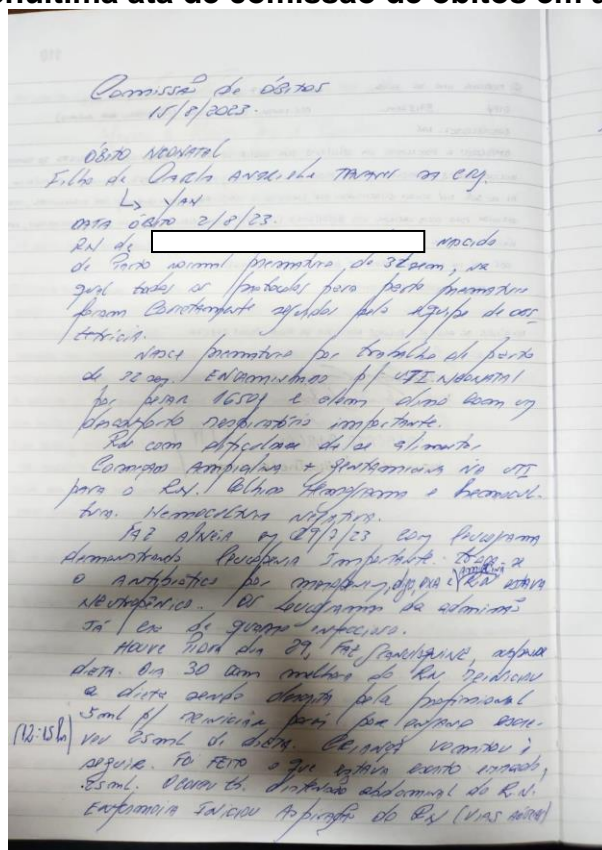 núltima ata de comissão de óbitos em
Comissão de óbitos
15/8/2023.
ÓBITO NEONATAL
Filho de
↳ YAN
DATA óbito 2/8/23.
RN de nascido
de Parto normal prematuro de 32 sem, na
qual todos os protocolos para parto prematuro
foram corretamente seguidos pela equipe de obs-
tetrícia.
Nasce prematuro por trabalho de parto
de 32 sem. ENCAMINHADO p/ UTI NEONATAL
por pesar 1650g e além disso com um
desconforto respiratório importante.
RN com dificuldade de se alimentar.
Começam Ampicilina + gentamicina na UTI
para o RN. Colhido Hemograma e hemocul-
tura. Hemocultura negativa.
FAZ APNEIA em 29/7/23 com leucograma
demonstrando leucopenia Importante. Troca-se
o Antibiótico por RN estava
Neutropênico. Os leucograma da admissão
Já era de quadro infeccioso.
Houve piora dia 29, FAZ suspende
dieta. Dia 30 com melhora do RN, reiniciou
a dieta sendo descrita pela profissional
5ml p/ reiniciar porém por engano escre-
(12:15h) veu 25ml de dieta. CRIANÇA vomitou à
seguir. Foi FEITO o que estava escrito errado,
25ml. Ocorreu distensão abdominal do R.N.
Enfermeira INICIOU Aspiração do RN (VIAS AÉREAS)